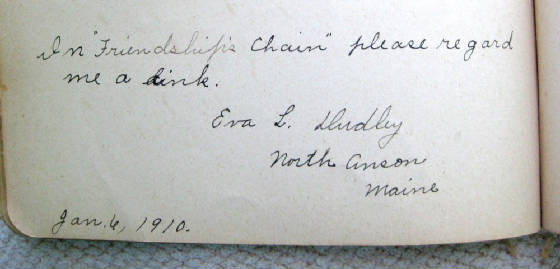 In "Friendship's Chain" please regard
me a link.
Eva L. Dudley
North Anson
Maine
Jan. 6, 1910.